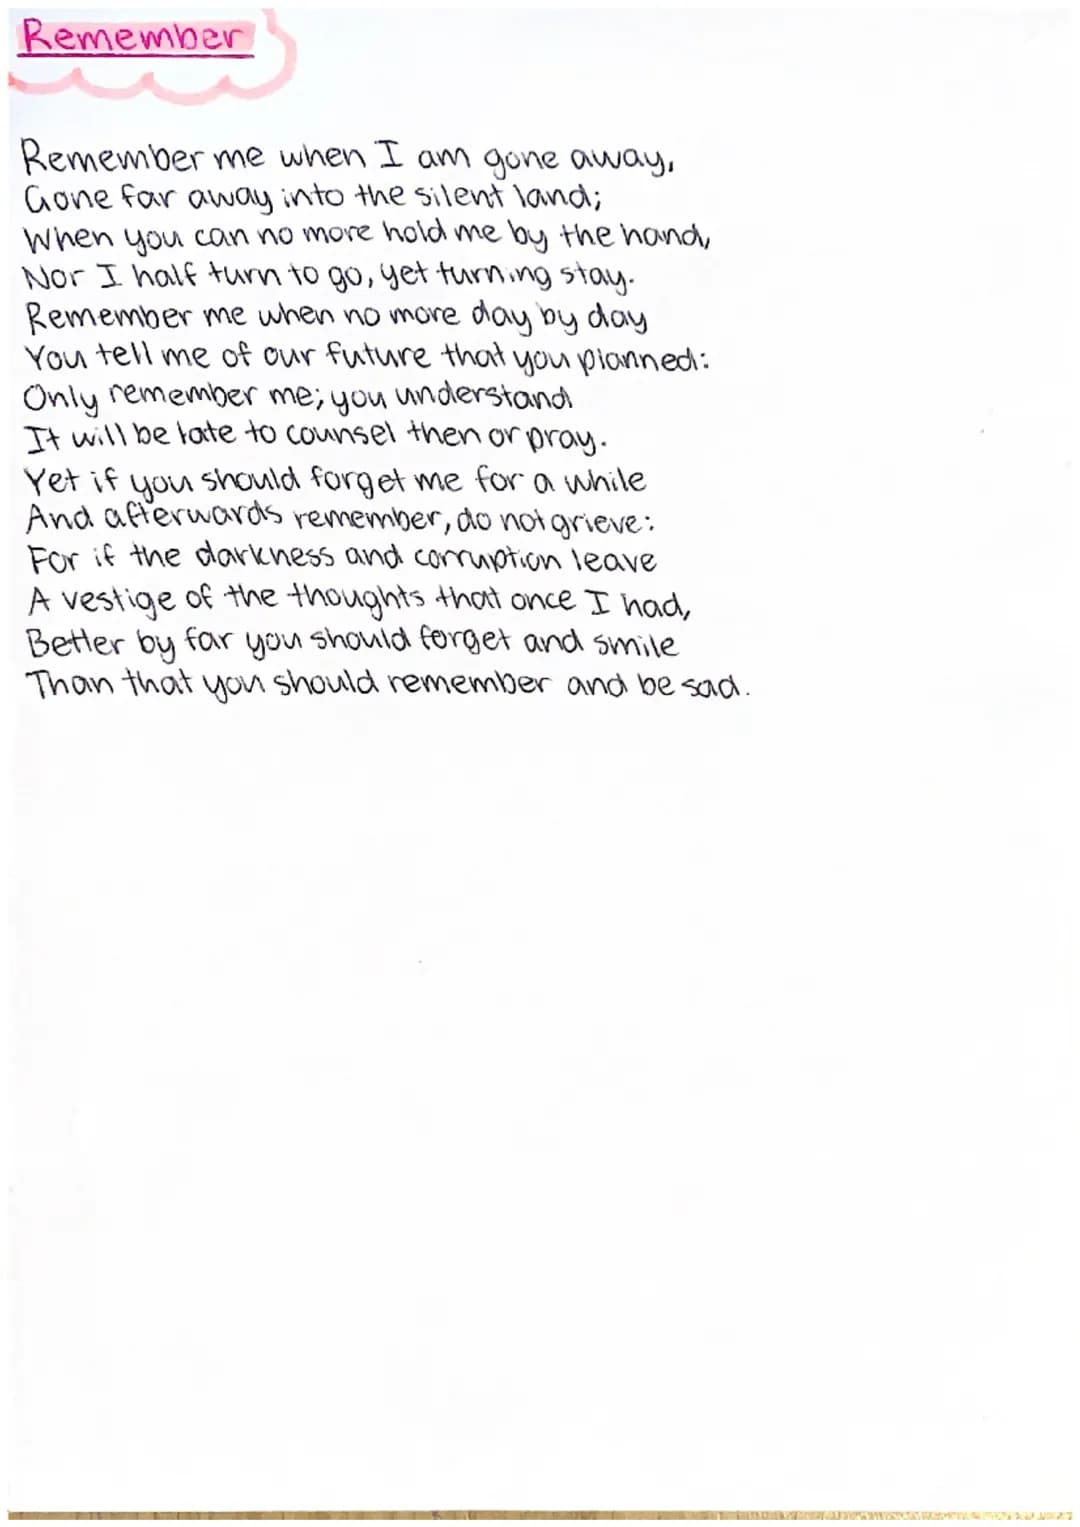 Remember
Remember me when I am gone away,
Gone far away into the silent land;
When you can no more hold me by the hand,
Nor I half turn to go, yet turning stay.
Remember me when no more day by day
You tell me of our future that you planned:
Only remember me; you understand
It will be late to counsel then or pray.
Yet if you should forget me for a while
And afterwards remember, do not grieve:
For if the darkness and corruption leave
A vestige of the thoughts that once I had,
Better by far you should forget and smile
Than that you should remember and be sad.